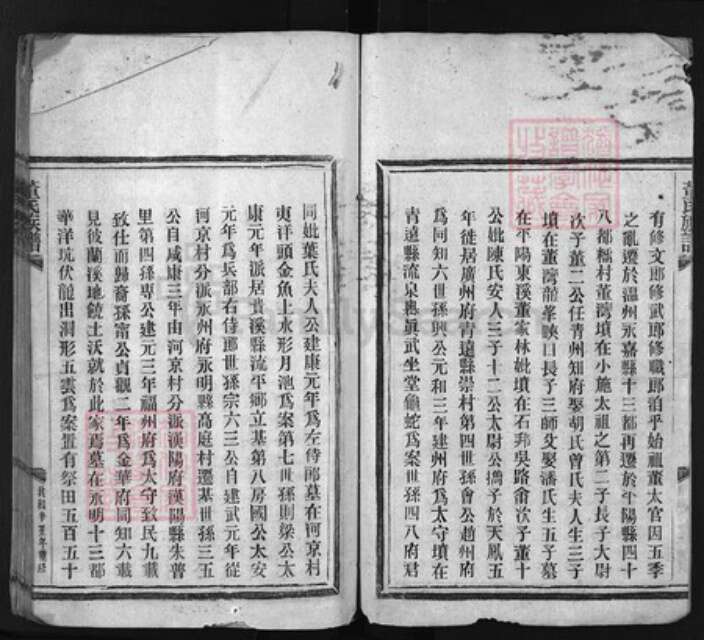 董氏族譜
有修文郎修武郎修職郎洎乎始祖董太官因五季
之亂遷於温州永嘉縣十三都再遷於平陽縣四十
八都糯村董灣墳在小施太祖之第二子長子大尉
次子董二公任青州知府娶胡氏曾氏夫人生三子
墳在董灣龍峯峽口長子三師艾娶潘氏生五子墓
在平陽東溪董家林妣墳在石 吳路 次子董十
公妣陳氏安人三子十二公太尉公携子於天鳳五
年徙居廣州府青遠縣崇村第四世孫會公趙州府
為同知六世孫興公元和三年建州府為太守墳在
青遠縣流泉 真武坐堂龜蛇為案世孫四八府君
同妣葉氏夫人公建康元年為左侍郎墓在河京村
東洋頭金魚上水形月池為案第七世孫則梁公太
康元年派居貴溪縣流平鄉立基第八房國公太安
元年為兵部右侍郎世孫宗六三公自建武元年從
河京村分派永州府永明縣高庭村遷基世孫三五
公自咸康三年由河京村分派漢陽府漢陽縣朱普
里第四孫専公建元三年福州府為太守致民九載
致仕而歸裔孫甯公貞觀二年為金華府同知六載
見彼蘭溪地饒土沃就於此家焉墓在永明十三都
華洋坑伏龍出洞形五雲為案置有祭田五百五十
董氏族譜